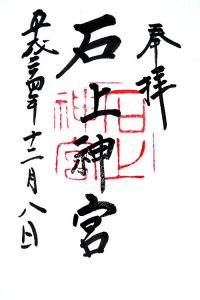 奉拝
石上神宮
平成二四年十二月八日
石上
神宮